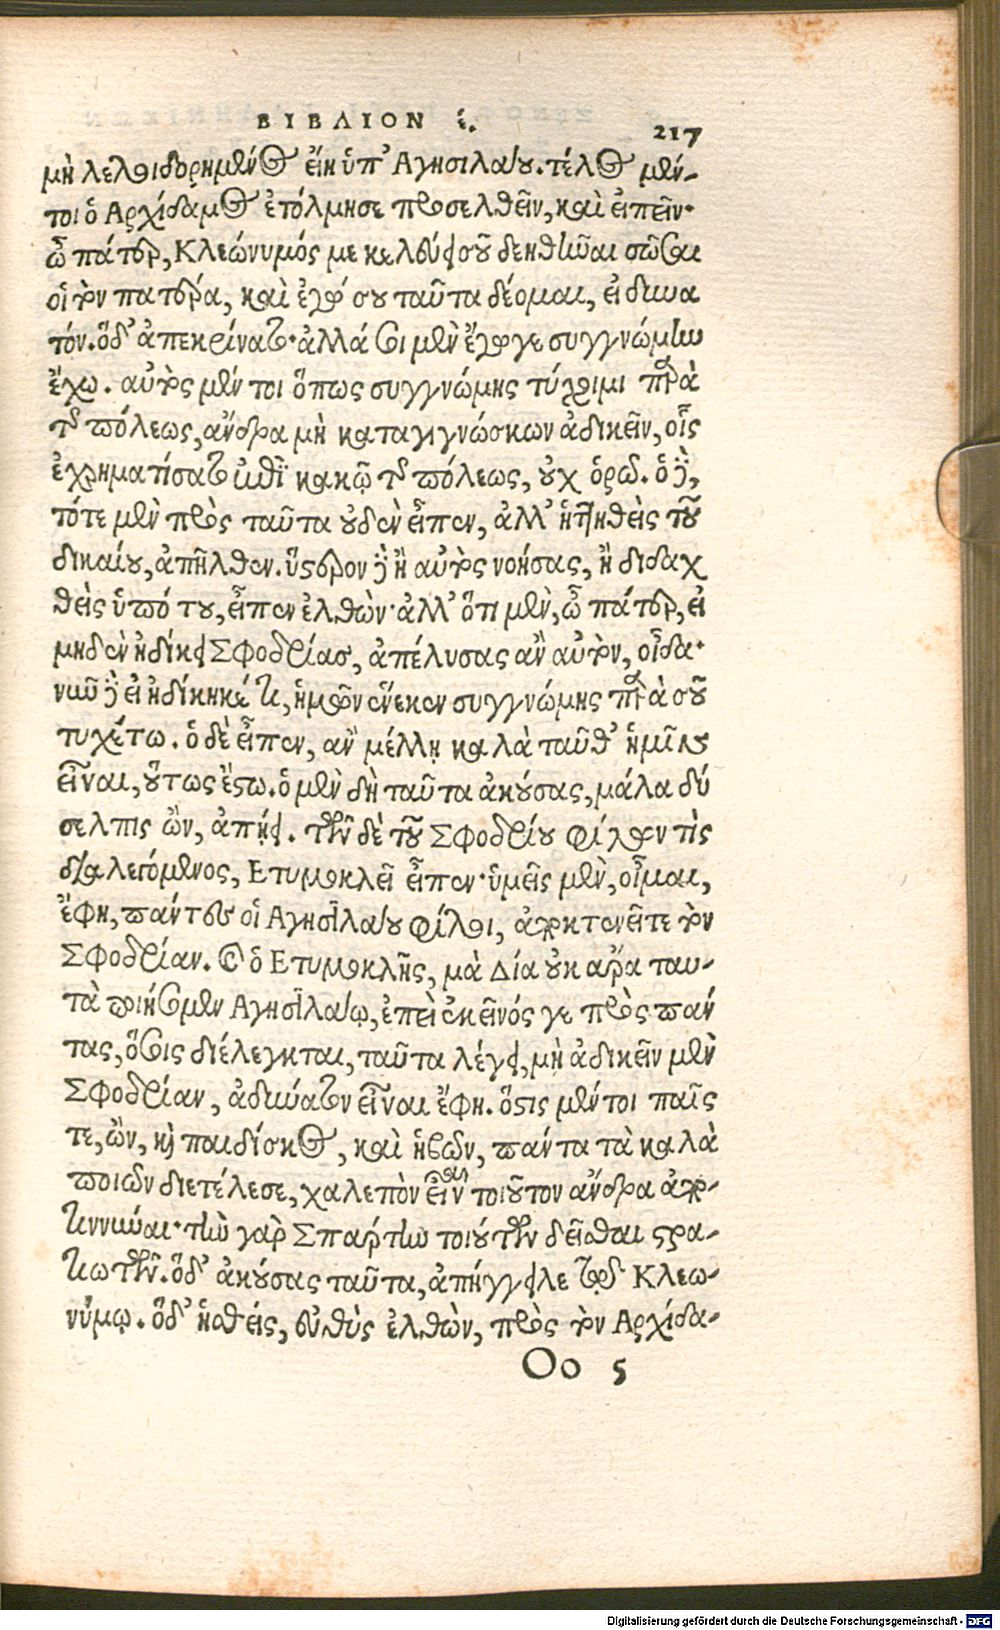 ΒΙΒΛΙΟΝ έ. 217
μὴ λελοιδορημένος εἴη ὑπ' Αγησιλάου. τέλος μέν-
τοι ὁ Αρχίδαμος ἐτόλμησε προσελθεῖν, καὶ εἰπεῖν·
ὦ πάτερ, Κλεώνυμός με κελεύει σοῦ δεηθῆναι σῶσαι
οἱ τὸν πατέρα, καὶ ἐγώ σου ταῦτα δέομαι, εἰ δυνα
τόν. ὅδ' ἀπεκρίνατο· ἀλλά σοι μὲν ἔγωγε συγγνώμην
ἔχω. αὐτὸς μέν τοι ὅπως συγγνώμης τύχοιμι παρὰ
τῆς πόλεως, ἄνδρα μὴ καταγιγνώσκων ἀδικεῖν, οἷς
ἐχρηματίσατο ἐπὶ κακῷ τῆς πόλεως, οὐχ ὁρῶ. ὁ δὲ,
τότε μὲν πρὸς ταῦτα οὐδὲν εἶπεν, ἀλλ' ἡττηθεὶς τοῦ
δικαίου, ἀπῆλθεν. ὕστερον δὲ ἢ αὐτὸς νοήσας, ἢ διδαχ
θεὶς ὑπό του, εἶπεν ἐλθὼν· ἀλλ' ὅτι μὲν, ὦ πάτερ, εἰ
μηδὲν ἠδίκει Σφοδρίας, ἀπέλυσας ἂν αὐτὸν, οἶδα·
νῦν δὲ εἰ ἠδίκηκέ τι, ἡμῶν ἕνεκεν συγγνώμης παρὰ σοῦ
τυχέτω. ὁ δὲ εἶπεν, ἂν μέλλῃ καλὰ ταῦθ' ἡμῖν
εἶναι, οὕτως ἔστω. ὁ μὲν δὴ ταῦτα ἀκούσας, μάλα δύ
σελπις ὢν, ἀπῄει. τῶν δὲ τοῦ Σφοδρίου φίλων τὶς
διαλεγόμενος, Ετυμοκλεῖ εἶπεν· ὑμεῖς μὲν, οἶμαι,
ἔφη, πάντες οἱ Αγησιλάου φίλοι, ἀποκτενεῖτε τὸν
Σφοδρίαν. καὶ ὁ Ετυμοκλῆς, μὰ Δία οὐκ ἄρα ταυ-
τὰ ποιήσομεν Αγησιλάῳ, ἐπεὶ ἐκεῖνός γε πρὸς πάν
τας, ὅσοις διέλεγκται, ταῦτα λέγει, μὴ ἀδικεῖν μὲν
Σφοδρίαν, ἀδύνατον εἶναι ἔφη. ὅστις μέν τοι παῖς
τε, ὢν, καὶ παιδίσκος, καὶ ἡβῶν, πάντα τὰ καλὰ
ποιῶν διετέλεσε, χαλεπὸν εἶναι τοιοῦτον ἄνδρα ἀπο-
κτιννύναι· τὴν γὰρ Σπάρτην τοιούτων δεῖσθαι στρα-
τιωτῶν. ὅδ' ἀκούσας ταῦτα, ἀπήγγειλε τῷ Κλεω-
νύμῳ. ὅδ' ἡσθείς, εὐθὺς ἐλθὼν, πρὸς τὸν Αρχίδα-
Oo 5
Digitalisierung gefördert durch die Deutsche Forschungsgemeinschaft - DFG